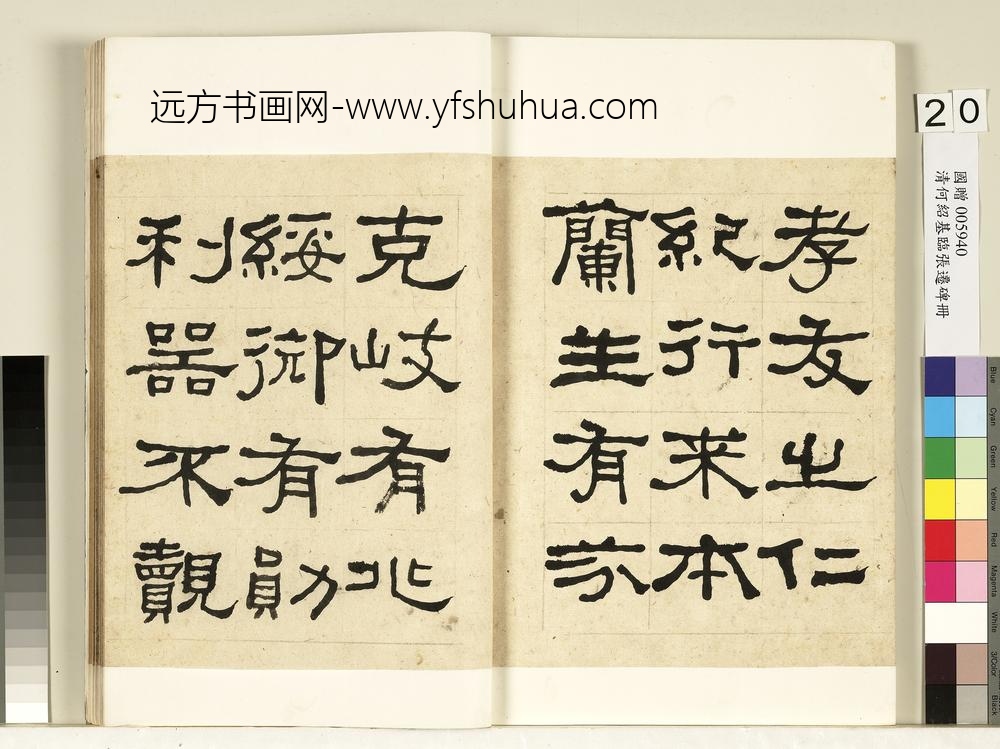 远方书画网-www.yfshuhua.com
孝友之仁
紀行来本
蘭生有芬
克岐有兆
綏御有勛
利器不覿
20
國贈 005940
清何紹基臨張遷碑冊
Blue
Cyan
Green
Yellow
Red
Magenta
White
3/Color
Black